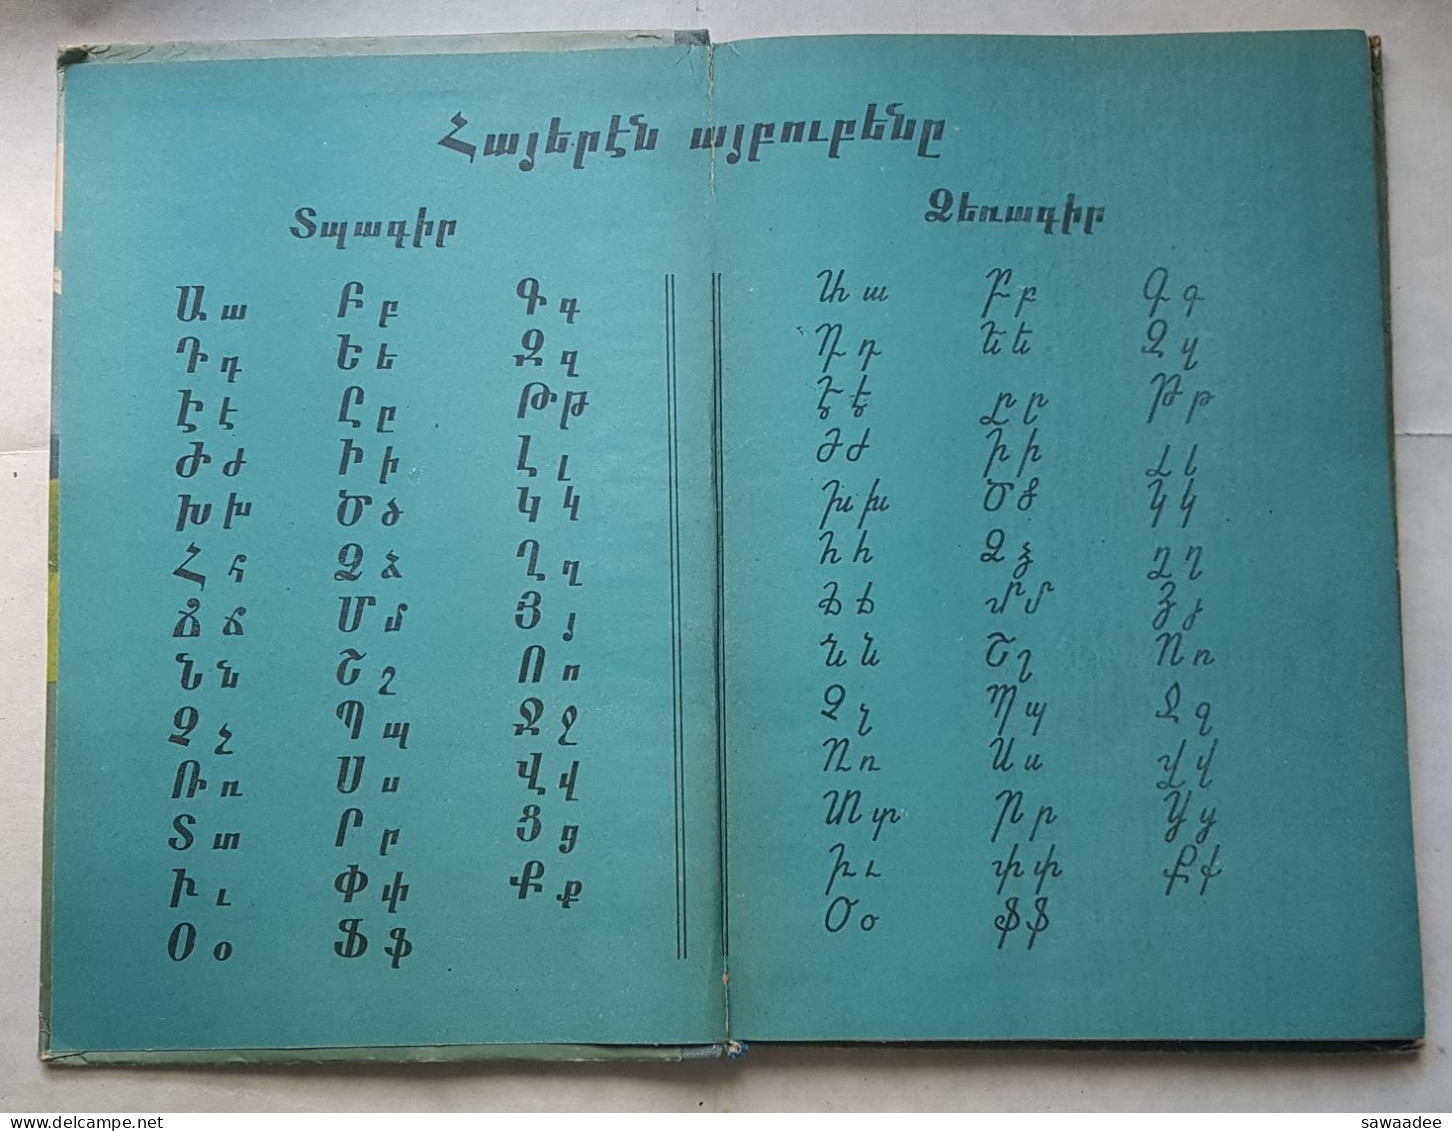 Հայերէն այբուբենը
Տպագիր
Ա ա Բ բ Գ գ
Դ դ Ե ե Զ զ
Է է Ը ը Թ թ
Ժ ժ Ի ի Լ լ
Խ խ Ծ ծ Կ կ
Հ հ Ձ ձ Ղ ղ
Ճ ճ Մ մ Յ յ
Ն ն Շ շ Ո ո
Չ չ Պ պ Ջ ջ
Ռ ռ Ս ս Վ վ
Տ տ Ր ր Ց ց
Ւ ւ Փ փ Ք ք
Օ օ Ֆ ֆ
Ձեռագիր
Ա ա Բ բ Գ գ
Դ դ Ե ե Զ զ
Է է Ը ը Թ թ
Ժ ժ Ի ի Լ լ
Խ խ Ծ ծ Կ կ
Հ հ Ձ ձ Ղ ղ
Ճ ճ Մ մ Յ յ
Ն ն Շ շ Ո ո
Չ չ Պ պ Ջ ջ
Ռ ռ Ս ս Վ վ
Տ տ Ր ր Ց ց
Ւ ւ Փ փ Ք ք
Օ օ Ֆ ֆ
delcampe.net
sawaadee